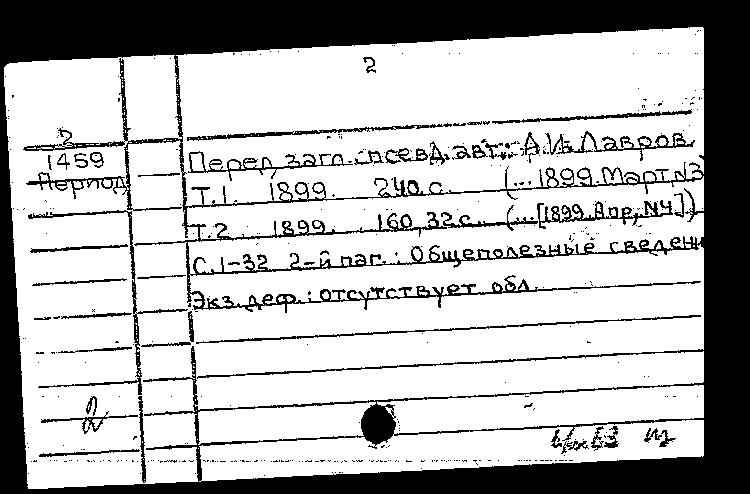 2
2
1459
Период
Перед загл. псевд. авт.: А.И. Лавров.
Т.1. 1899. 240 с. (...1899. Март, N3)
Т.2. 1899. 160, 32 с. (...[1899. Апр., N4])
С.1-32 2-й паг.: Общеполезные сведени
Экз. деф.: отсутствует обл.
2